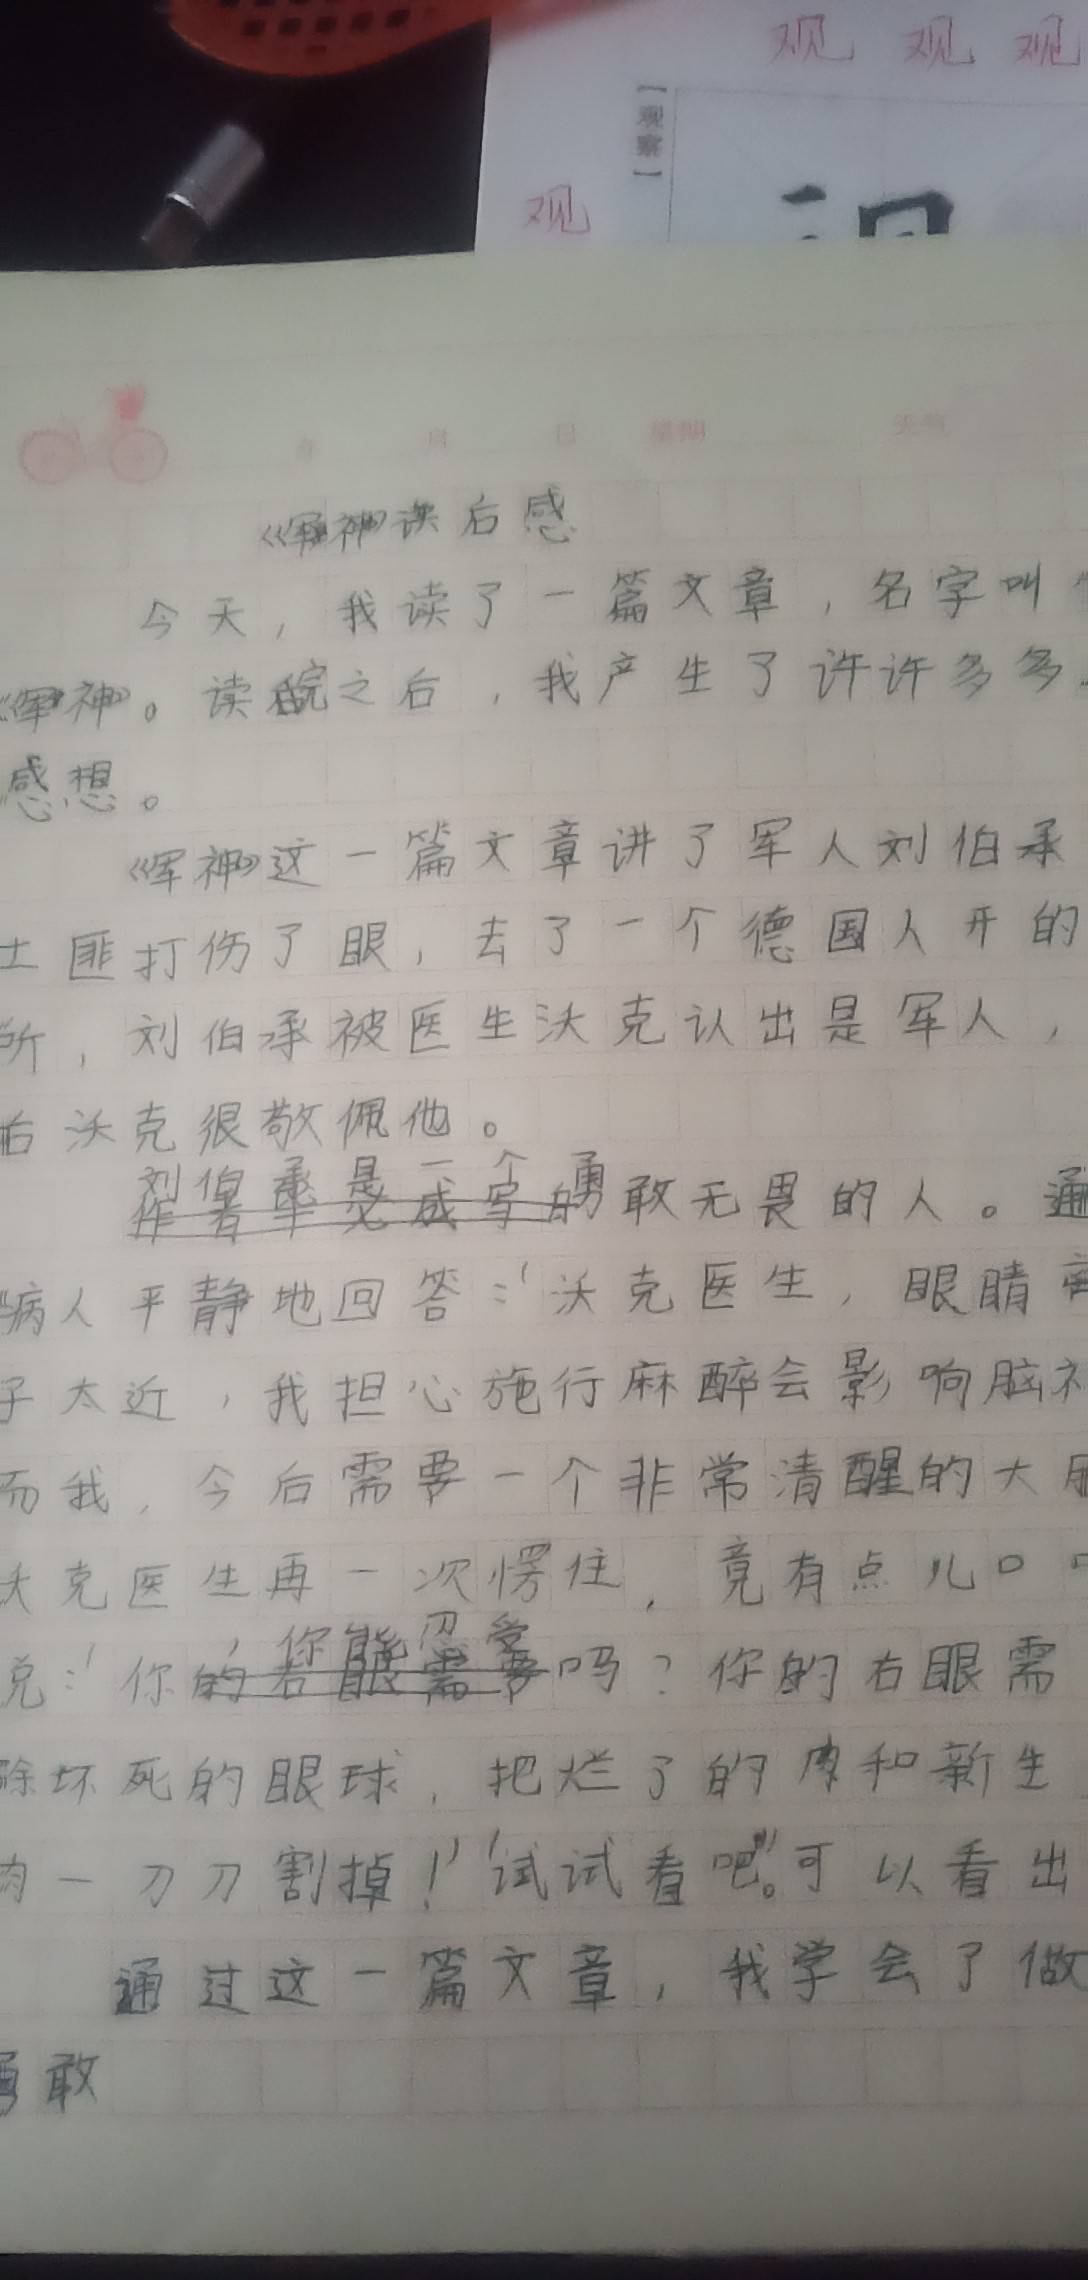 观 观 观
【观察】
观
年 月 日 星期 天气
《军神》读后感
今天，我读了一篇文章，名字叫
《军神》。读完之后，我产生了许许多多
感想。
《军神》这一篇文章讲了军人刘伯承
土匪打伤了眼，去了一个德国人开的
所，刘伯承被医生沃克认出是军人，
后沃克很敬佩他。
刘伯承是一个勇敢无畏的人。通
病人平静地回答：“沃克医生，眼睛离
子太近，我担心施行麻醉会影响脑神
而我，今后需要一个非常清醒的大脑
沃克医生再一次愣住，竟有点儿口
克：“你，你能忍受吗？你的右眼需
除坏死的眼球，把烂了的肉和新生
肉一刀刀割掉！”“试试看吧。”可以看出
通过这一篇文章，我学会了做
勇敢